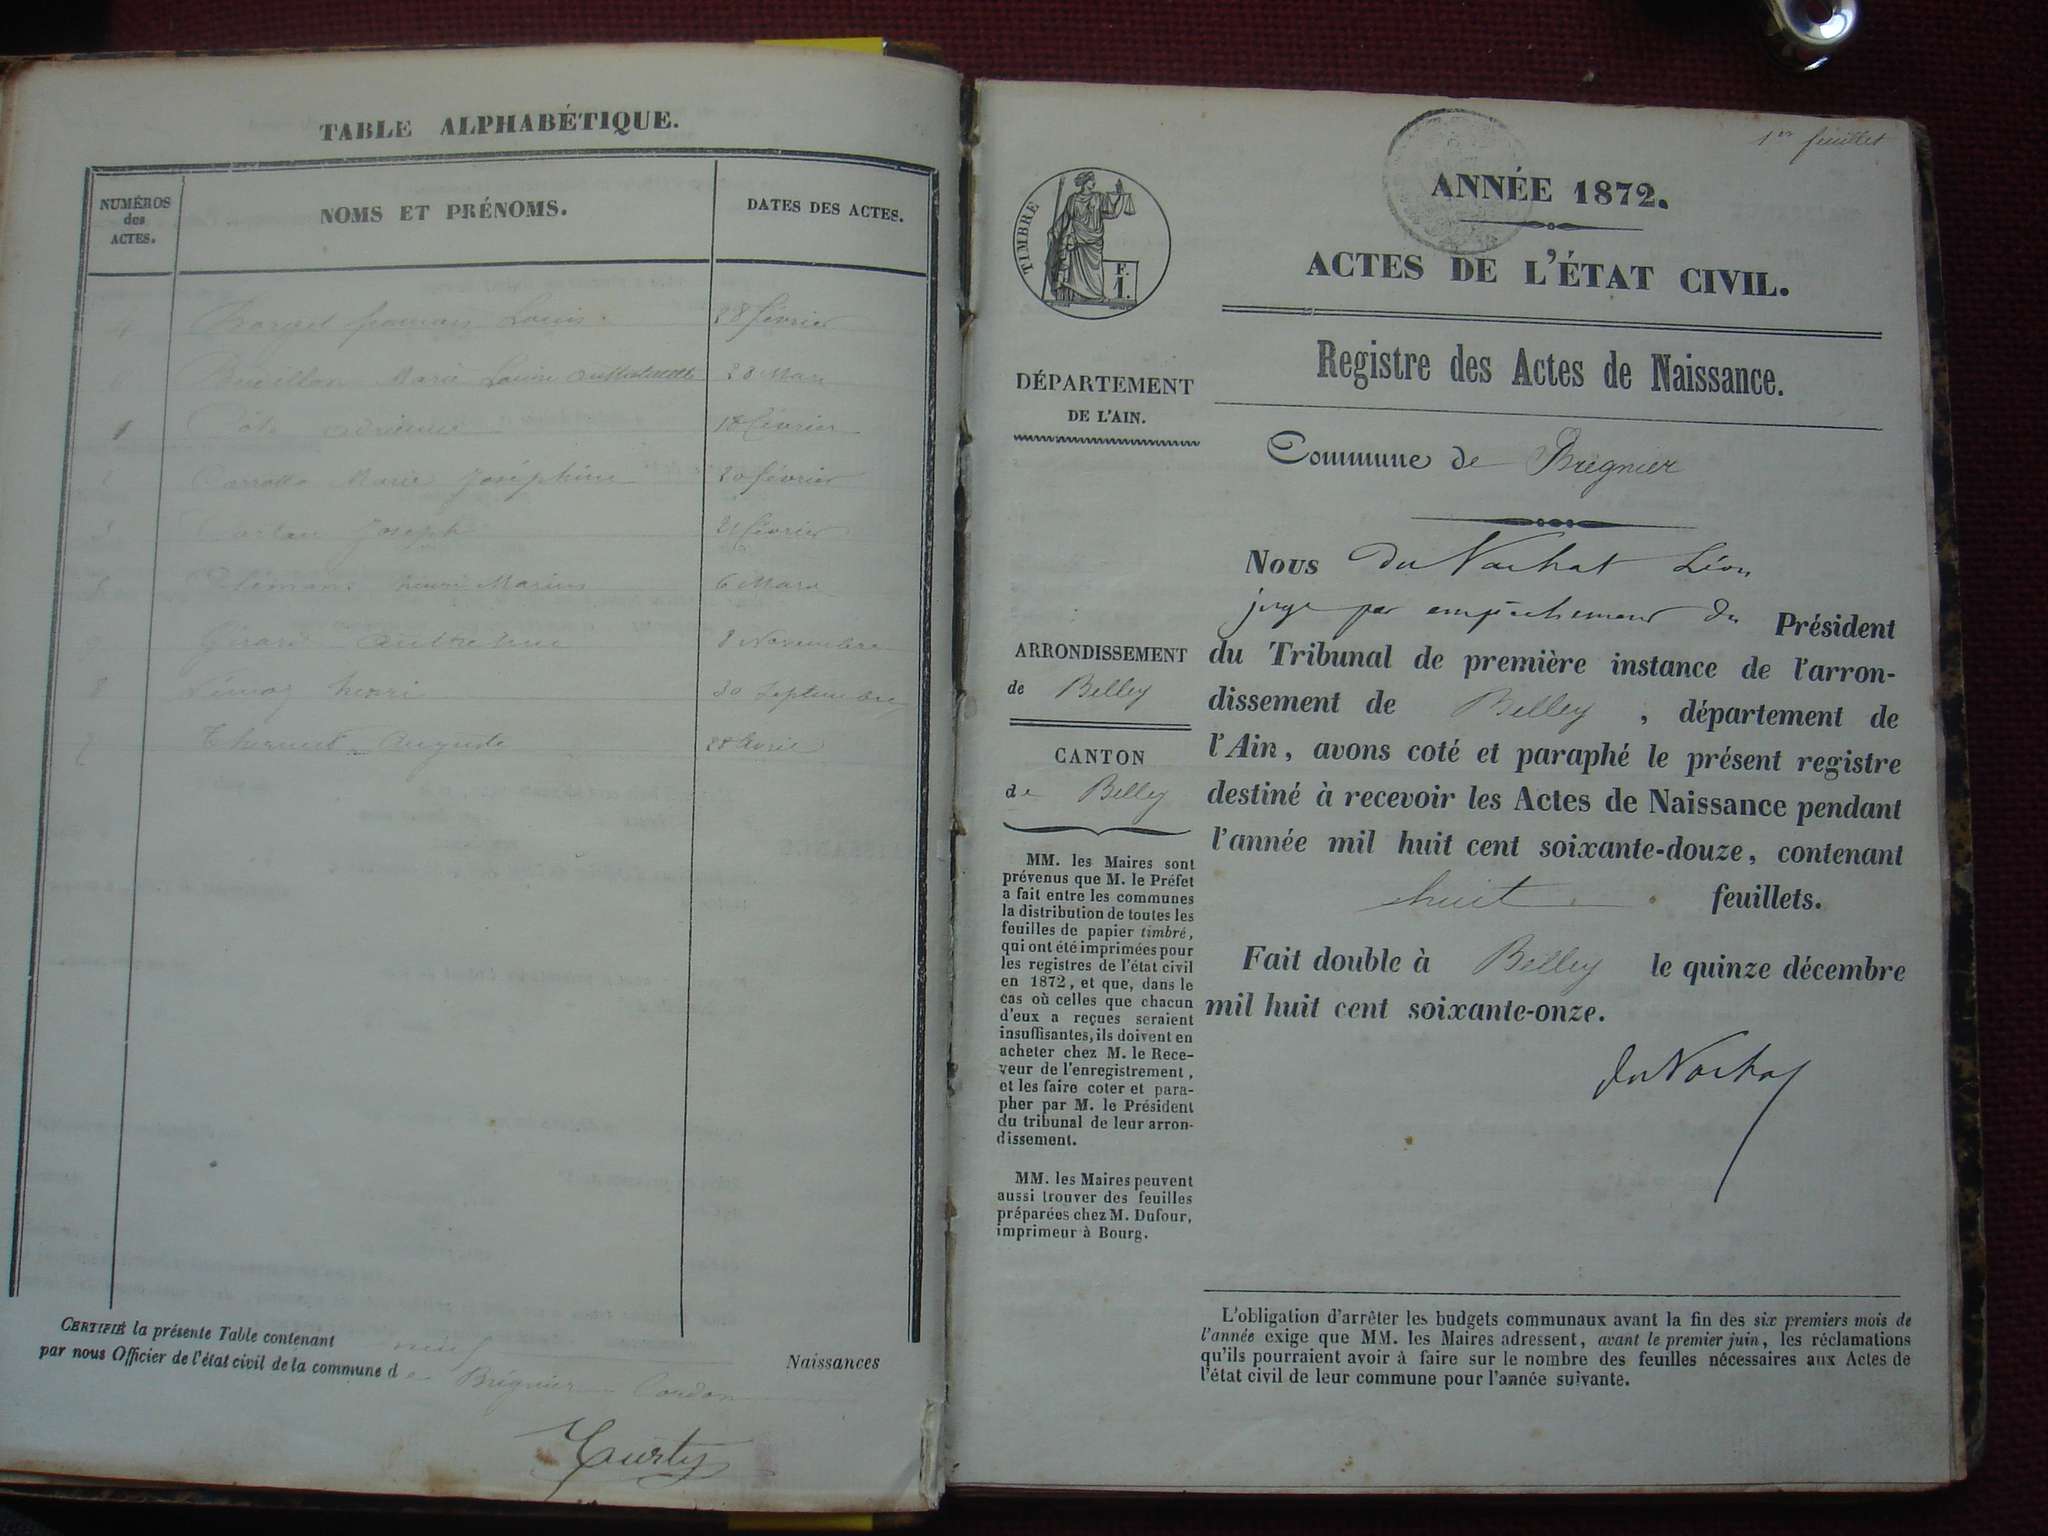 TABLE ALPHABÉTIQUE.
NUMÉROS
des
ACTES.
NOMS ET PRÉNOMS.
DATES DES ACTES.
4 Louis 28 février
Marie Louise 28 Mars
1 18 février
Marie Joséphine 20 février
Joseph 21 février
henri Marius 6 Mars
Girard 8 Novembre
8 henri 30 Septembre
7 Auguste 28 Avril
CERTIFIÉ la présente Table contenant neuf Naissances
par nous Officier de l'état civil de la commune de Brégnier Cordon
1er feuillet
TIMBRE
F.
1.
ANNÉE 1872.
ACTES DE L'ÉTAT CIVIL.
Registre des Actes de Naissance.
DÉPARTEMENT
DE L'AIN.
Commune de Brégnier
Nous du Nachat Léon
juge par empêchement du Président
du Tribunal de première instance de l'arron-
dissement de Belley, département de
l'Ain, avons coté et paraphé le présent registre
destiné à recevoir les Actes de Naissance pendant
l'année mil huit cent soixante-douze, contenant
huit feuillets.
Fait double à Belley le quinze décembre
mil huit cent soixante-onze.
ARRONDISSEMENT
de Belley
CANTON
de Belley
MM. les Maires sont
prévenus que M. le Préfet
a fait entre les communes
la distribution de toutes les
feuilles de papier timbré,
qui ont été imprimées pour
les registres de l'état civil
en 1872, et que, dans le
cas où celles que chacun
d'eux a reçues seraient
insuffisantes, ils doivent en
acheter chez M. le Rece-
veur de l'enregistrement,
et les faire coter et para-
pher par M. le Président
du tribunal de leur arron-
dissement.
MM. les Maires peuvent
aussi trouver des feuilles
préparées chez M. Dufour,
imprimeur à Bourg.
L'obligation d'arrêter les budgets communaux avant la fin des six premiers mois de
l'année exige que MM. les Maires adressent, avant le premier juin, les réclamations
qu'ils pourraient avoir à faire sur le nombre des feuilles nécessaires aux Actes de
l'état civil de leur commune pour l'année suivante.